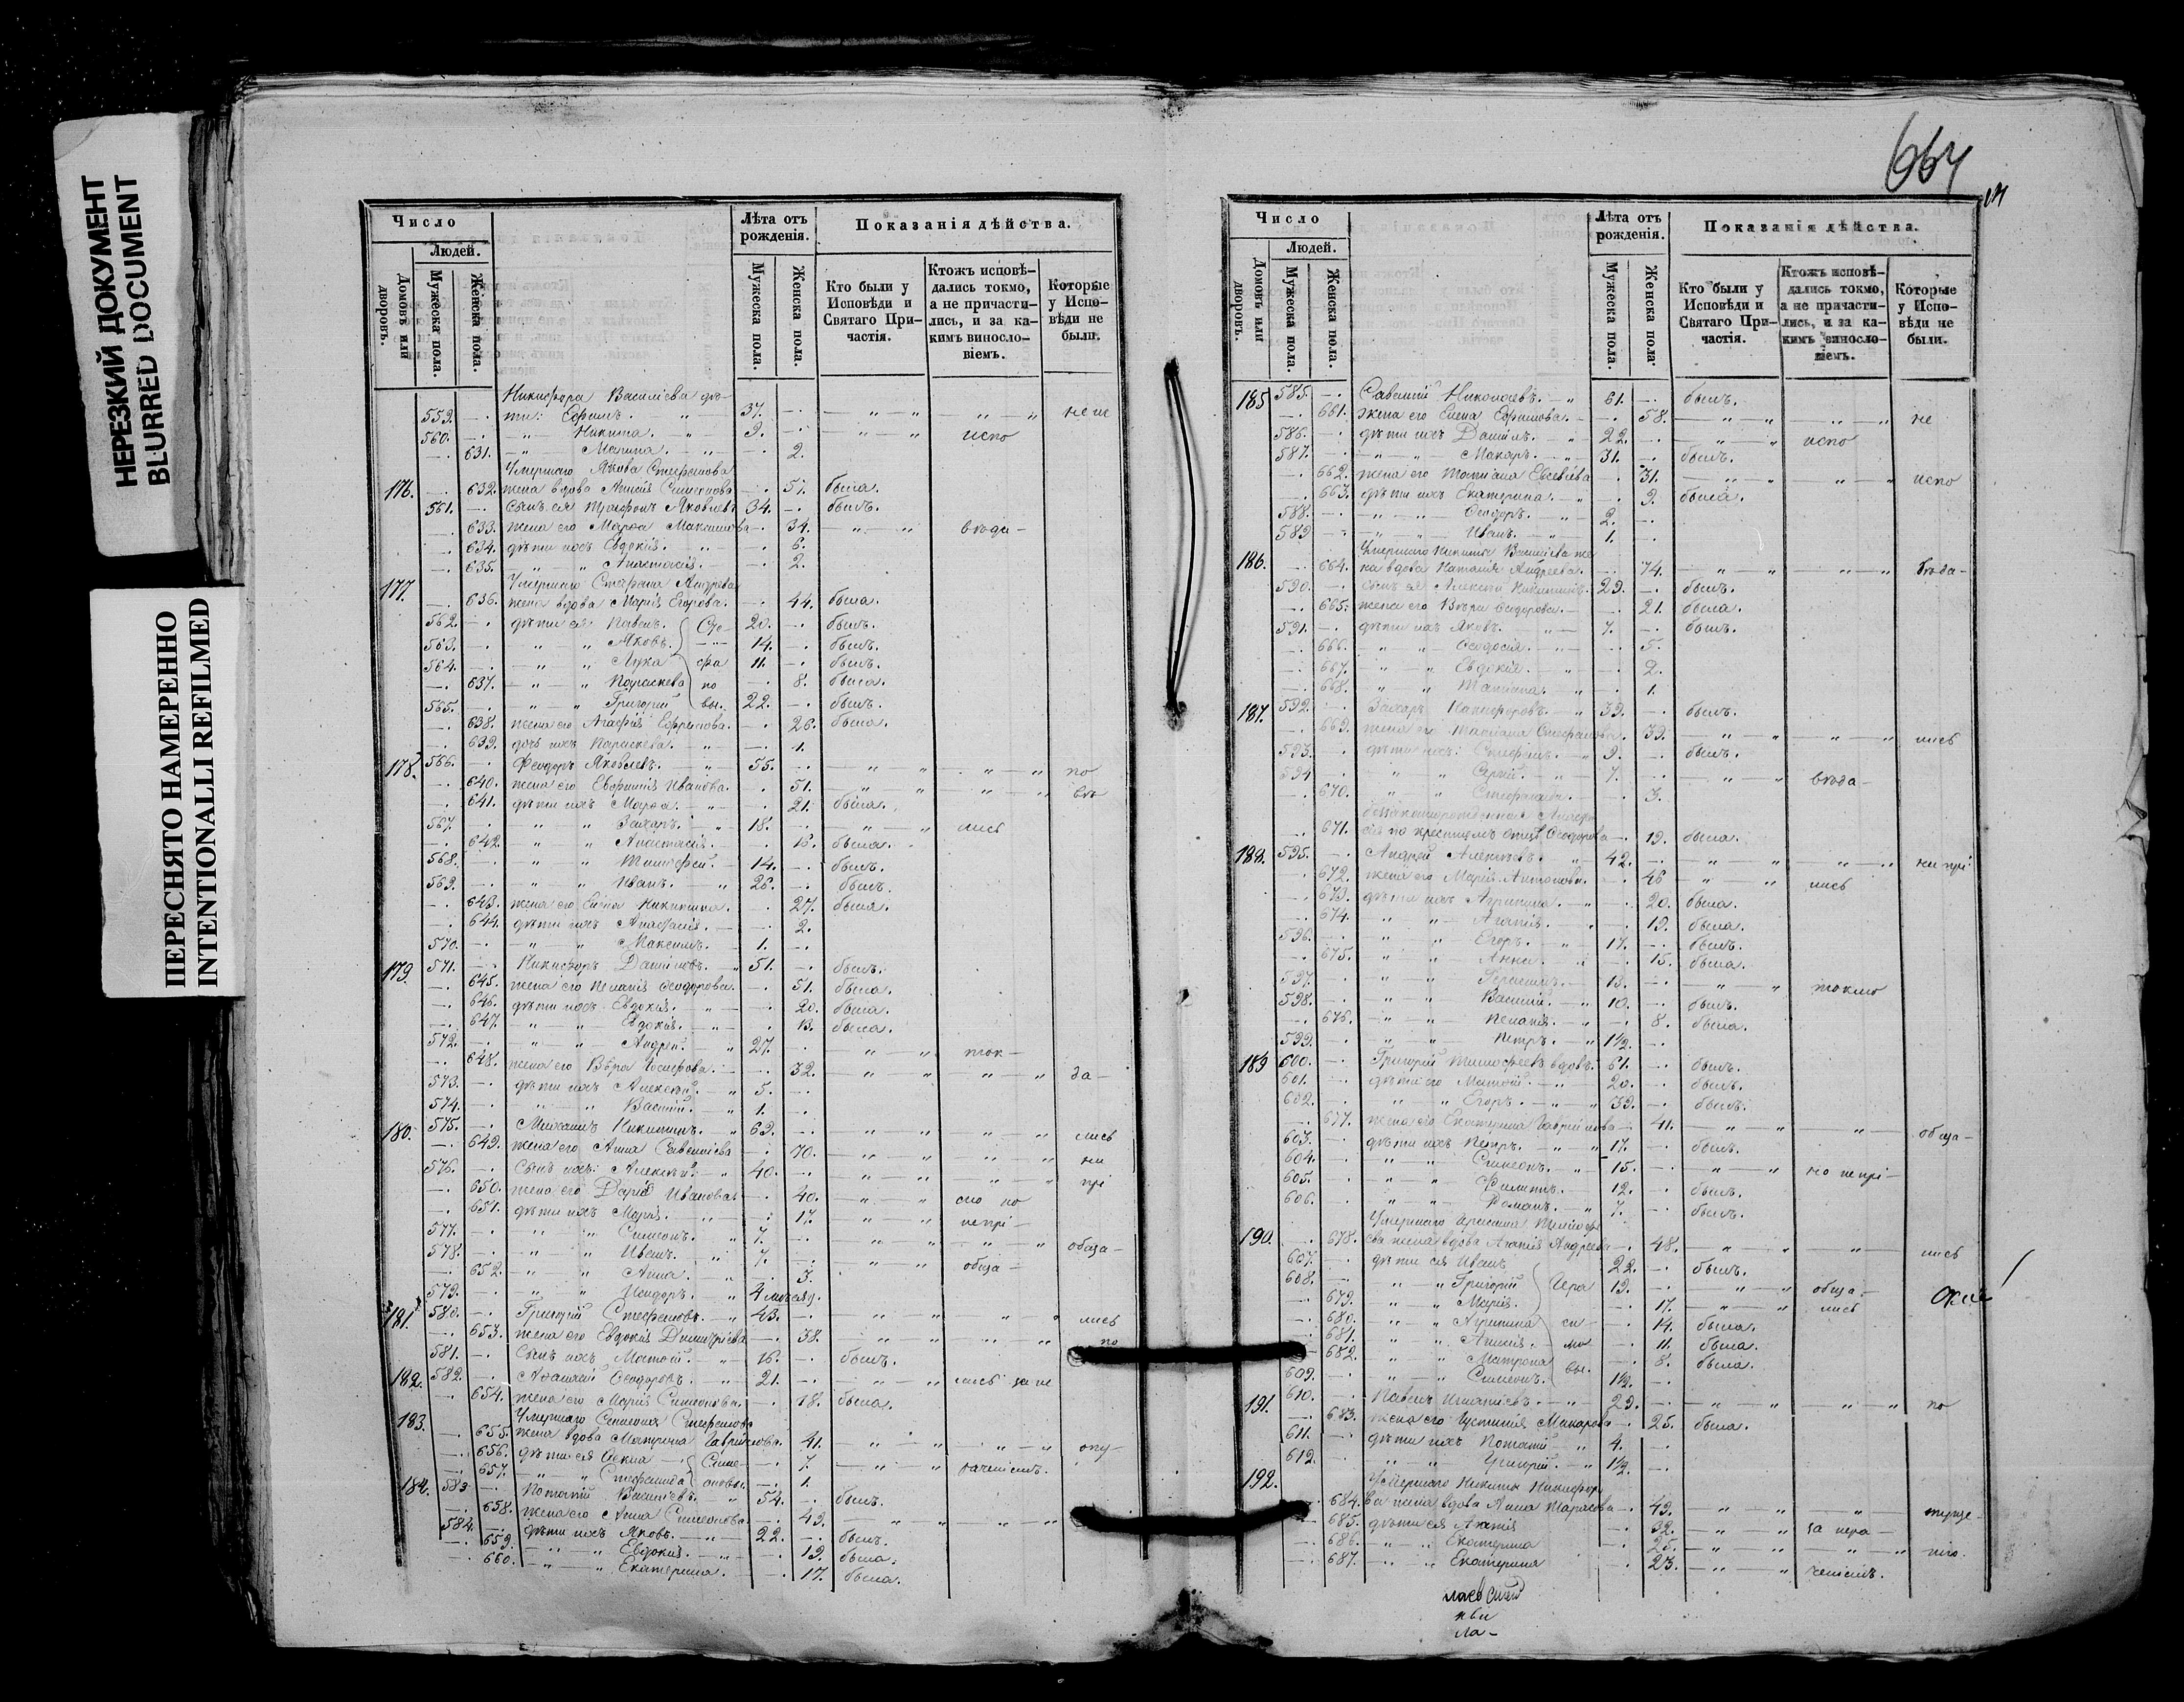 НЕРЕЗКИЙ ДОКУМЕНТ
BLURRED DOCUMENT
ПЕРЕСНЯТО НАМЕРЕННО
INTENTIONALLI REFILMED
Число
Людей.
Домовъ или дворовъ.
Мужеска пола.
Женска пола.
Лѣта отъ рожденія.
Мужеска пола.
Женска пола.
Показанія дѣйства.
Кто были у Исповѣди и Святаго Причастія.
Ктожъ исповѣдались токмо, а не причастились, и за какимъ винословіемъ.
Которые у Исповѣди не были.
Никифора Василіева дѣ-
559. ти: Ефимъ. 37. неи
560. Никита. 9. испо
631. Марина. 2.
Умершаго Якова Стефанова
176. 632. жена вдова Анисія Симеонова 57. была.
561. Сынъ ея Трифонъ Яковлевъ 34. былъ.
633. жена его Марѳа Максимова 34. вѣда-
634. дѣти ихъ Евдокія. 6.
635. Анастасія. 2.
177. Умершаго Стефана Андреева
636. жена вдова Марія Егорова. 44. была.
562. дѣти ея: Павелъ. Сте- 20. былъ.
563. Яковъ. 14. былъ.
564. Лука фа 11. былъ.
637. Параскева но 8. была.
565. Григорій вы. 22. былъ.
638. жена его Агафія Ефремова. 26. была.
639. дочь ихъ Параскева. 1.
178. 566. Ѳеодоръ Яковлевъ. 55. по
640. жена его Евфимія Иванова. 51. вѣ
641. дѣти ихъ Марѳа. 21. была.
567. Захаръ. 18. лись
642. Анастасія. 16. была.
568. Тимофей. 14. былъ.
569. Иванъ. 26. былъ.
643. жена его Елена Никитина. 27. была.
644. дѣти ихъ Анастасія. 2.
570. Максимъ. 1.
179. 571. Никифоръ Даниловъ. 51. былъ.
645. жена его Пелагія Ѳеодорова. 51. была.
646. дѣти ихъ Евдокія. 20. была.
647. Евдокія. 13. была.
572. Андрей. 27. ток-
648. жена его Вѣра Іосифова. 32. за-
573. дѣти ихъ Алексѣй. 5.
574. Василій. 1.
180. 575. Михаилъ Никитинъ. 69. лись
649. жена его Анна Савеліева 70. ни
576. Сынъ ихъ: Алексѣй. 40. прі
650. жена его Дарія Иванова. 40. мо но
651. дѣти ихъ Марія. 17. непрі-
577. Симеонъ. 7. обща-
578. Иванъ. 7. обща-
652. Анна. 3.
579. Исидоръ. 4 мѣсяц.
181. 580. Григорій Стефановъ. 43. лись
653. жена его Евдокія Димитріева 38. по
581. Сынъ ихъ Матѳій. 16. былъ.
182. 582. Аѳанасій Ѳеодоровъ. 21. лись за не
654. жена его Марія Симеонова. 18. была.
183. Умершаго Симеона Стефанова
655. жена вдова Матрона Гавріилова. 41. опу-
656. дѣти ея Ѳекла Симе- 7. раченіемъ.
657. Стефанида оновы. 1.
184. 583. Потапій Василіевъ. 54. былъ.
658. жена его Анна Симеонова. 49.
584. дѣти ихъ Яковъ. 22. былъ.
659. Евдокія. 19. была.
660. Екатерина. 17. была.
664
Число
Людей.
Домовъ или дворовъ.
Мужеска пола.
Женска пола.
Лѣта отъ рожденія.
Мужеска пола.
Женска пола.
Показанія дѣйства.
Кто были у Исповѣди и Святаго Причастія.
Ктожъ исповѣдались токмо, а не причастились, и за какимъ винословіемъ.
Которые у Исповѣди не были.
185 585. Савелій Николаевъ. 61. былъ.
661. жена его Елена Ефимова. 58. не
586. дѣти ихъ Даніилъ. 22. испо
587. Макаръ. 31. былъ.
662. жена его Татіана Евсевіева 31. испо
663. дѣти ихъ Екатерина. 9. была.
588. Ѳеодоръ. 2.
589 Иванъ. 1.
Умершаго Никиты Василіева же
186. 664. на вдова Наталія Андреева. 74. вѣда-
590. сынъ ея Алексѣй Никитинъ. 29. былъ.
665. жена его Вѣра Ѳеодорова. 21. была.
591. дѣти ихъ Яковъ. 7. былъ.
666. Ѳеодосія. 5.
667. Евдокія. 2.
668. Татіана. 1.
187. 592. Захаръ Никифоровъ. 39. былъ.
669. жена его Татіана Стефанова. 39. лись
593. дѣти ихъ: Стефанъ. 9. былъ.
594 Сергій. 7. вѣда-
670. Стефанида. 3.
671. по крестному отцу Ѳеодорова 19. была.
188. 595. Андрей Алексѣевъ. 42. ни прі
672. жена его Марія Антонова. 46 лись
673. дѣти ихъ Агрипина. 20. была.
674. Агапія. 19. была.
596. Егоръ. 17. былъ.
675. Анна. 15. была.
597. Герасимъ. 13. токмо
598. Василій. 10. былъ.
676. Пелагія. 8. была.
599. Петръ. 1½.
189 600. Григорій Тимофеевъ вдовъ. 61. былъ.
601. дѣти его Матѳій. 20. былъ.
602. Егоръ. 39. былъ.
677. жена его Екатерина Гавріилова 41. обща-
603. дѣти ихъ Петръ. 17. былъ.
604. Симеонъ. 15. но непрі-
605. Филиппъ. 12. былъ.
606. Романъ. 7. былъ.
Умершаго Герасима Тимофе
190. 678. ева жена вдова Агапія Андреева 48. лись
607. дѣти ея Иванъ 22. былъ.
608. Григорій Гера 19. обща-
679. Марія. 17. лись
680. Агрипина си- 14. была.
681. Анисія. мо 11. была.
682. Матрона вы. 8. была.
609. Симеонъ. 1½.
191. 610. Павелъ Игнатіевъ. 29. по
683. жена его Іустинія Макарова 25. была.
611. дѣти ихъ Потапій 4.
612. Григорій. 1½.
192. Умершаго Никиты Никифоро
684. ва жена вдова Анна Тарасова 49.
685. дѣти ея Агапія 32. за нера-
686. Екатерина 25.
687. Екатерина 23. ченіемъ.